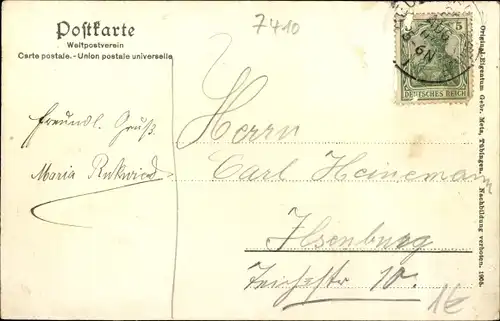 7410
Postkarte
Weltpostverein
Carte postale. - Union postale universelle
5
DEUTSCHES REICH
Freundl. Gruß.
Maria
Herrn
Carl Heineman
Ilsenburg
Teichestr 10.
1€
Original-Eigentum Gebr. Metz, Tübingen. Nachbildung verboten. 1904.